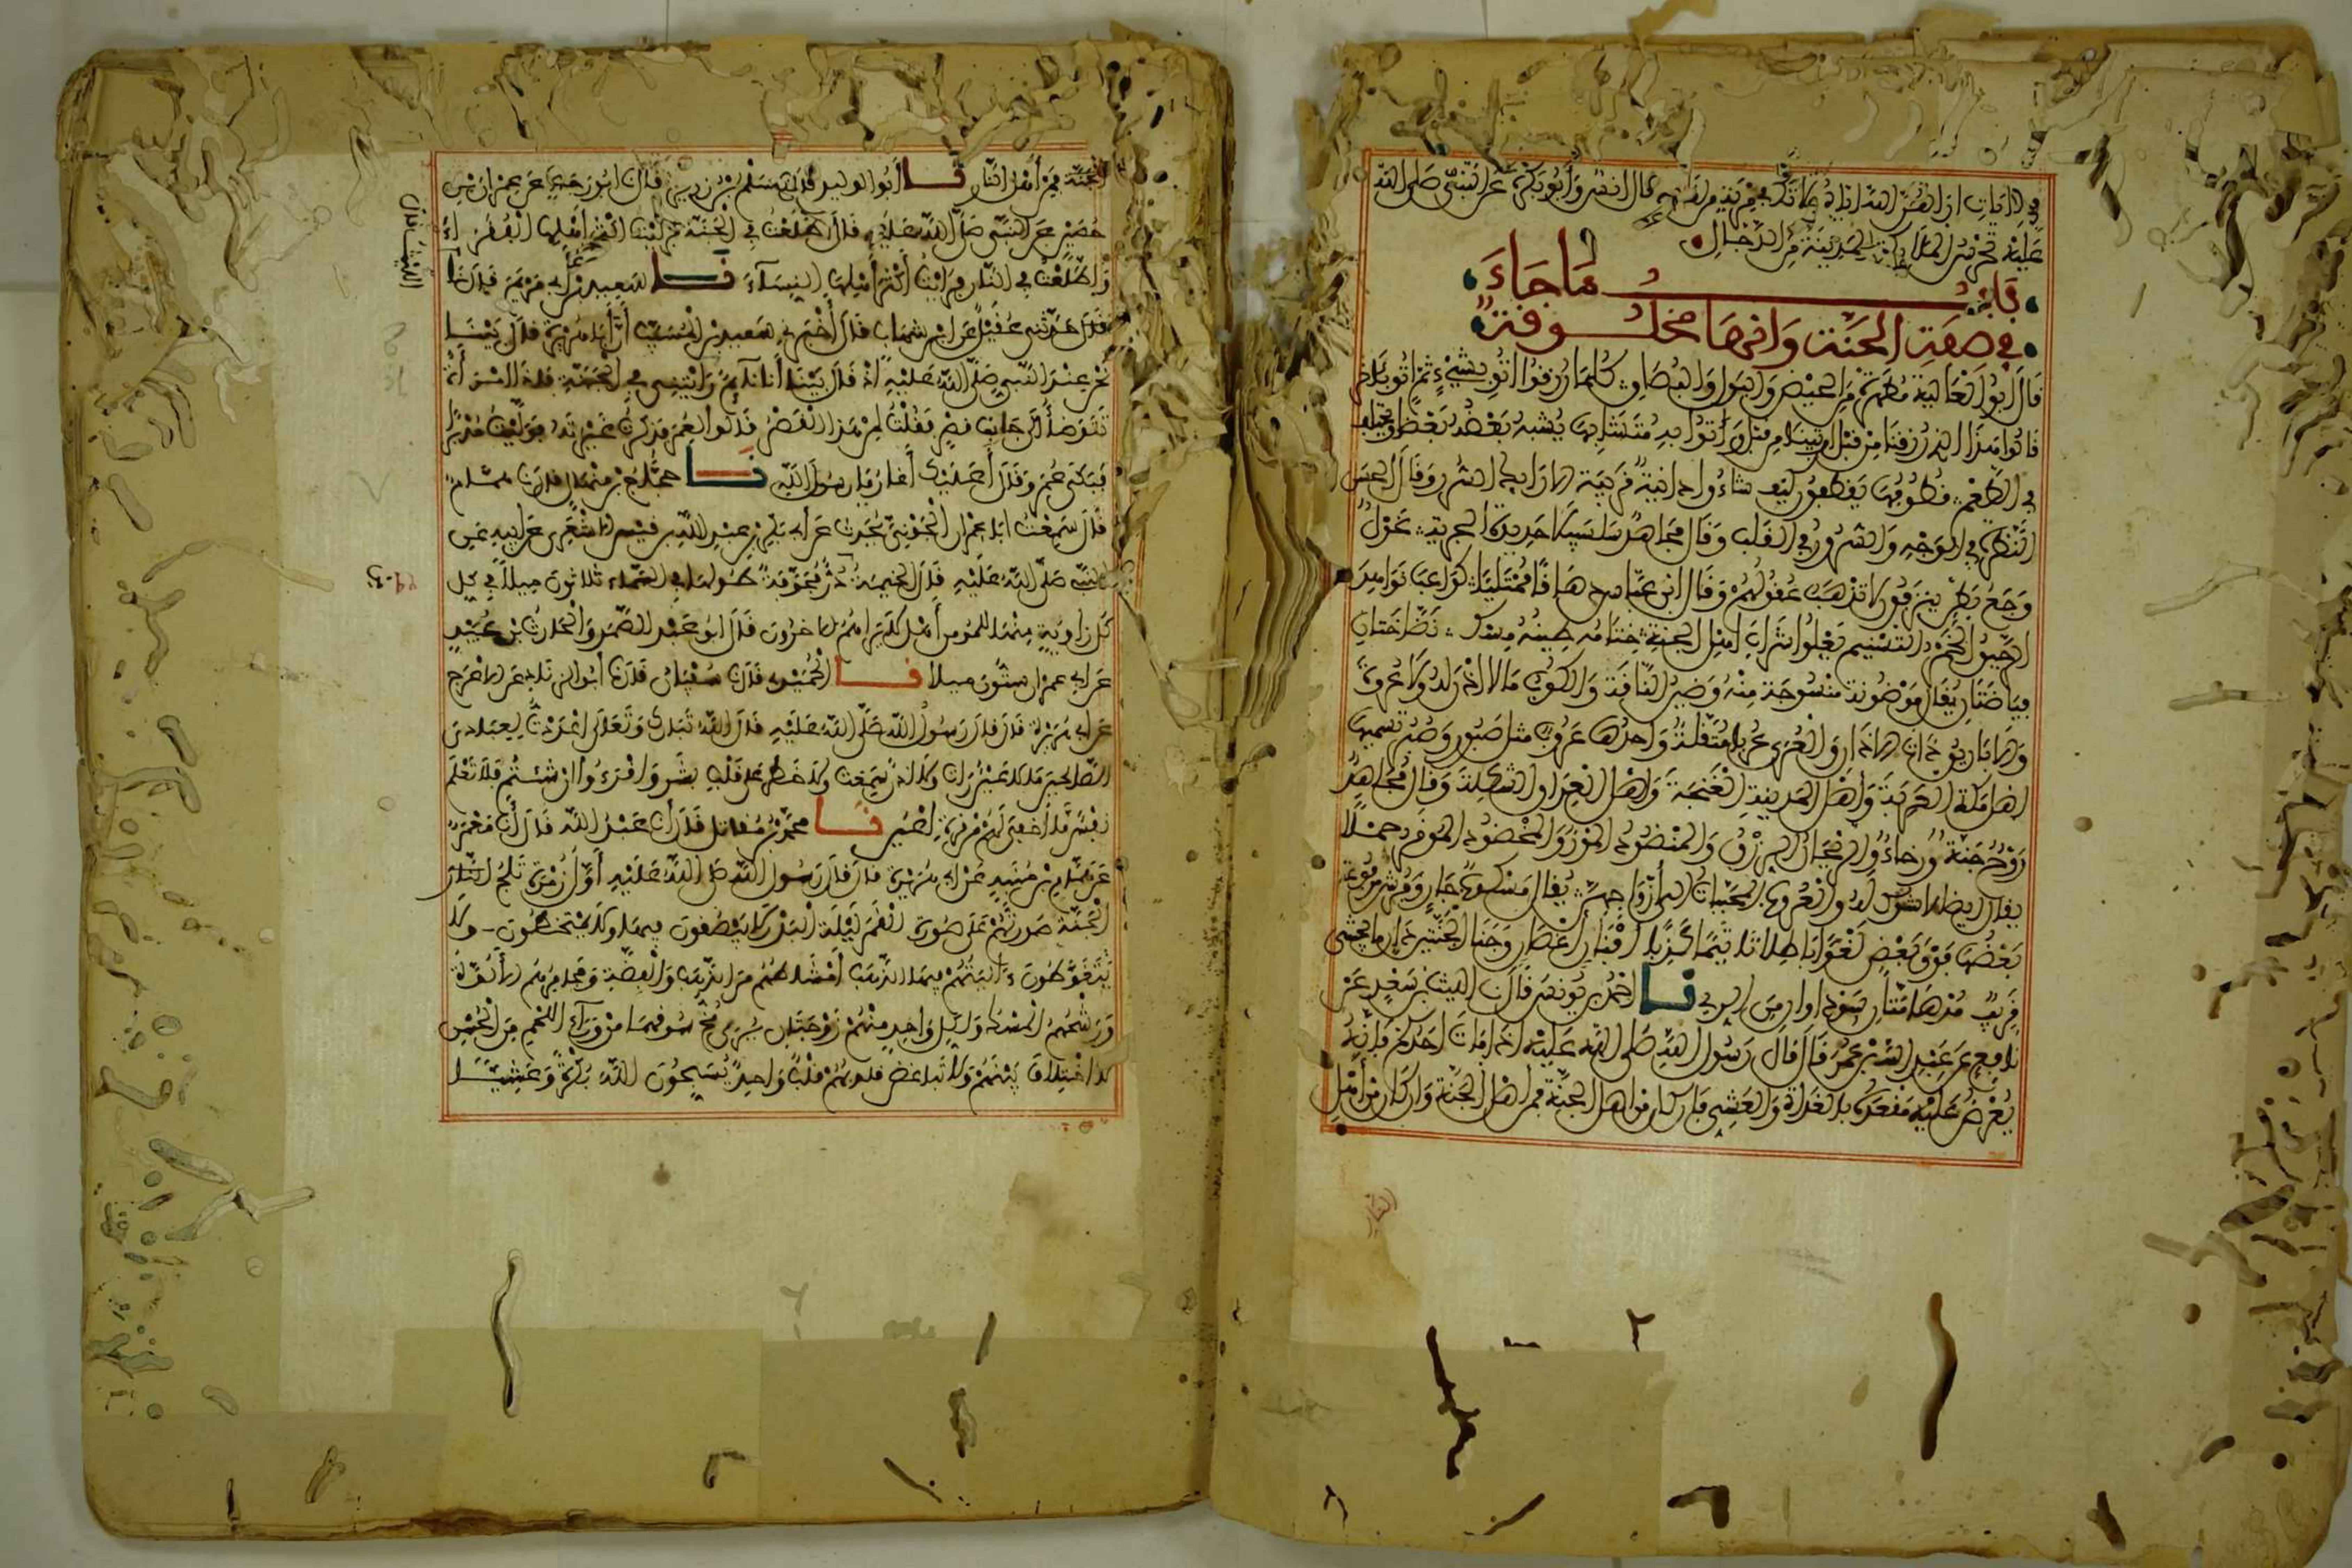 عليه تحرس الملائكة المدينة من الدجال
باب ما جاء
في صفة الجنة وانها مخلوقة
قال ابو العالية مطهرة من الحيض والبول والبصاق كلما رزقوا اتوا بشيء ثم اتوا بآخر
قالوا هذا الذي رزقنا من قبل اتينا من قبل واتوا به متشابها يشبه بعضه بعضا ويختلف
في الطعم قطوفها يقطفون كيف شاءوا دانية قريبة الارايك السرر وقال الحسن
النضرة في الوجه والسرور في القلب وقال مجاهد سلسبيلا حديدة الجرية غول
وجع بطن ينزفون لا تذهب عقولهم وقال ابن عباس دهاقا ممتليا كواعب نواهد
الرحيق الخمر التسنيم يعلوا شراب اهل الجنة ختامه طينه مسك نضاختان
فياضتان يقال موضونة منسوجة منه وضين الناقة والكوب ما لا اذن له ولا عروة
والاباريق ذات الاذان والعرى عربا مثقلة واحدها عروب مثل صبور وصبر تسميها
اهل مكة العربة واهل المدينة الغنجة واهل العراق الشكلة وقال مجاهد
روح جنة ورخاء والريحان الرزق والمنضود الموز والمخضود الموقر حملا
يقال ايضا لا شوك له والعرب المحببات الى ازواجهن يقال مسكوب جار وفرش مرفوعة
بعضها فوق بعض لغوا باطلا تاثيما كذبا افنان اغصان وجنا الجنتين دان ما يجتنى
قريب مدهامتان سوداوان من الري نا احمد بن يونس قال نا الليث بن سعد عن
نافع عن عبد الله بن عمر قال قال رسول الله صلى الله عليه اذا مات احدكم فانه
يعرض عليه مقعده بالغداة والعشي فان كان من اهل الجنة فمن اهل الجنة وان كان من اهل
النار
الجنة فمن أهل النار نا أبو الوليد قال نا سلم بن زرير قال نا ابو رجاء عن عمران بن
حصين عن النبي صلى الله عليه قال اطلعت في الجنة فرأيت أكثر أهلها الفقراء
واطلعت في النار فرأيت أكثر أهلها النساء نا سعيد بن أبي مريم قال نا
قال حدثني عقيل عن ابن شهاب قال أخبرني سعيد بن المسيب أن أبا هريرة قال بينا
نحن عند النبي صلى الله عليه اذ قال بينا أنا نائم رأيتني في الجنة فاذا امرأة
تتوضأ الى جانب قصر فقلت لمن هذا القصر قالوا لعمر فذكرت غيرته فوليت مدبرا
فبكى عمر وقال أعليك أغار يا رسول الله نا حجاج بن منهال قال نا همام
قال سمعت ابا عمران الجوني يحدث عن أبي بكر بن عبد الله بن قيس الاشعري عن ابيه عن
النبي صلى الله عليه قال الخيمة در مجوفة طولها في السماء ثلاثون ميلا في كل
كل زاوية منها للمؤمن أهل لا يراهم الاخرون قال ابو عبد الصمد والحارث بن عبيد
عن ابي عمران ستون ميلا نا الحميدي قال نا سفيان قال نا أبو الزناد عن الاعرج
عن ابي هريرة قال قال رسول الله صلى الله عليه قال الله تبارك وتعالى اعددت لعبادي
الصالحين ما لا عين رأت ولا اذن سمعت ولا خطر على قلب بشر واقرءوا ان شئتم فلا تعلم
نفس ما أخفي لهم من قرة أعين نا محمد بن مقاتل قال أنا عبد الله قال أنا معمر
عن همام بن منبه عن ابي هريرة قال قال رسول الله صلى الله عليه أول زمرة تلج
الجنة صورتهم على صورة القمر ليلة البدر لا يبصقون فيها ولا يمتخطون ولا
يتغوطون ءانيتهم فيها الذهب أمشاطهم من الذهب والفضة ومجامرهم الألوة
ورشحهم المسك ولكل واحد منهم زوجتان يرى مخ سوقهما من وراء اللحم من الحسن
لا اختلاف بينهم ولا تباغض قلوبهم قلب واحد يسبحون الله بكرة وعشيا